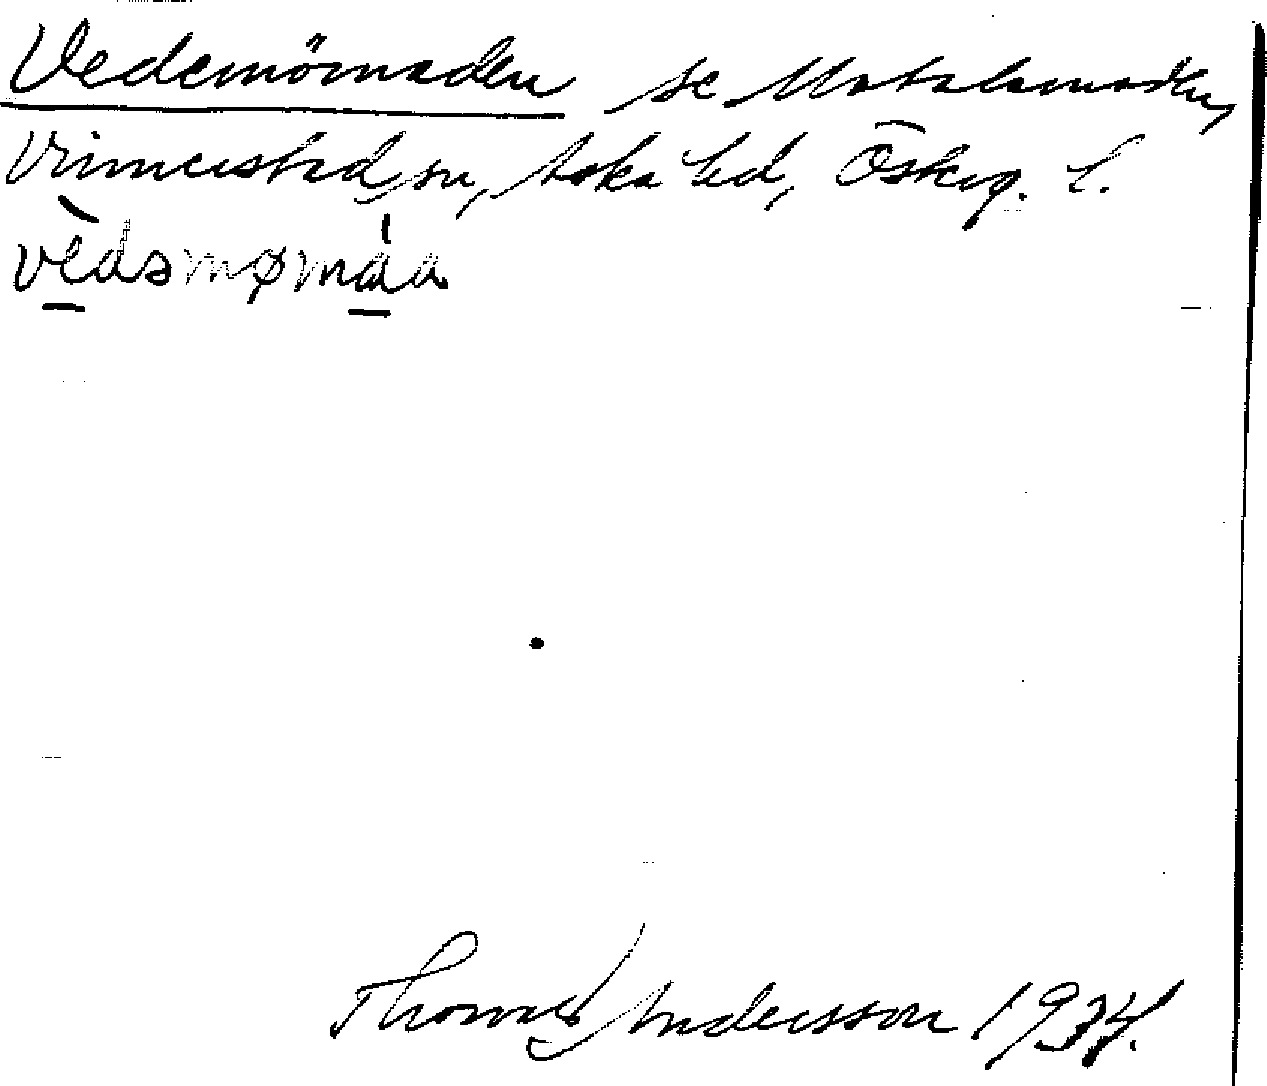 Vedemömaden se Motalamaden,
Vinnerstad sn, Aska hd, Östég. l.
vèdəmømáa
Thomas Andersson 1934.